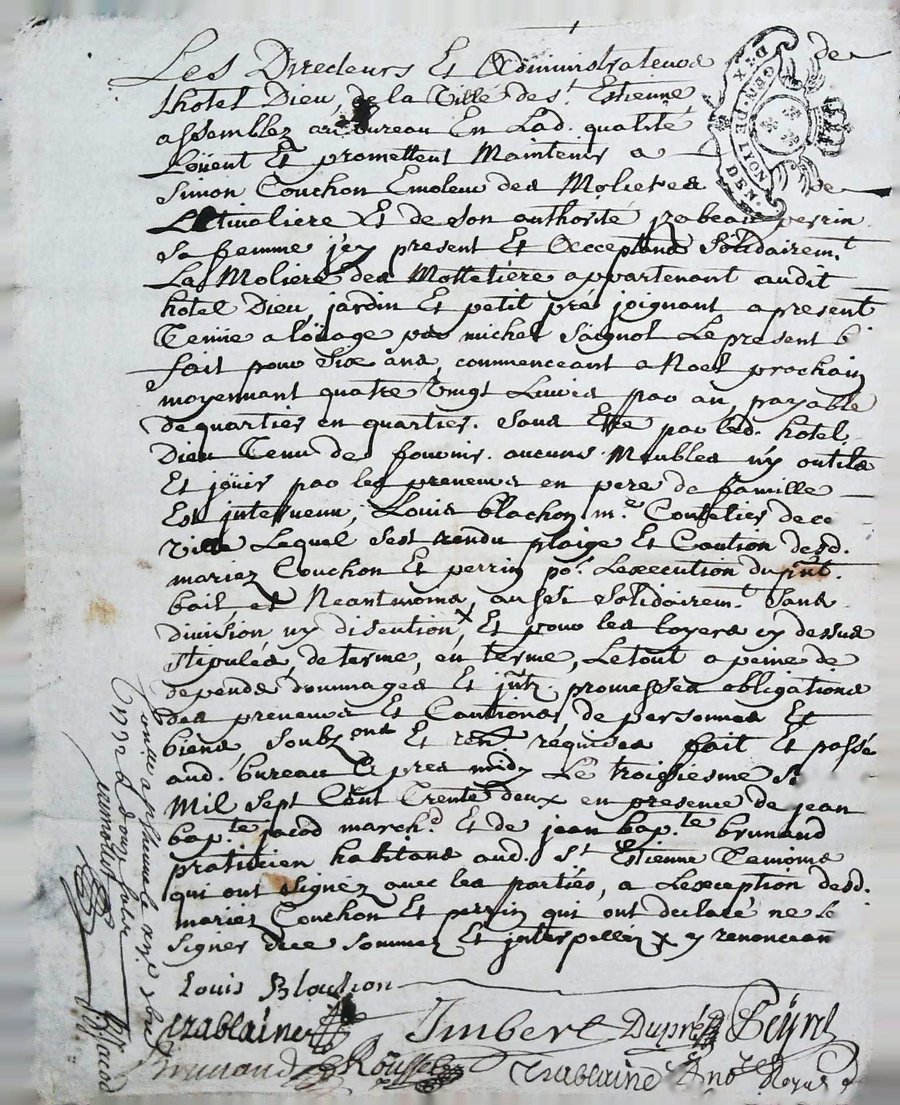 Les Directeurs Et Administrateurs de
Lhotel Dieu, de la Ville de St. Estienne
assemblez au bureau En Lad. qualité
Loüent Et promettent Maintenir a
Simon Couchon Emoleur des Molieres de
et de son authorité jzabeau perrin
sa femme jcy present Et Acceptans Solidairemt.
La Moliere des Mottetiere appartenant audit
hotel Dieu, jardin Et petit pré joignant a present
Tenüe a loüage par michel Saignol Le present b
fait pour Six ans, commenceant a Noel prochain
moyennant quatre Vingt Livres par an, payable
de quartier en quartier. Sans Etre par led. hotel
Dieu Tenu de fournir aucuns Meubles ny outils
Et joüir par les preneurs en pere de famille
Est jntervenu, Louis blachon me. Coutelier de ce
ville Lequel s'est rendu plaige Et Caution desd.
mariez Couchon Et perrin por. Lexecution du pnt.
bail, et Neantmoins, aussi Solidairemt. Sans
division, ny discution x, Et pour les loyers cy dessus
stipulés, de terme, en terme, Le tout a peine de
depends dommages Et jnts, promesses obligations
des preneurs Et Cautions, de personnes Et
biens, Soubz ons Et requises fait Et passé
aud. bureau apres midy Le troisiesme
Mil Sept Cent Trente deux en presence de jean
bapte. jacod marchd. Et de jean bapte. brunand
praticien habitans aud. St Estienne Temoins
qui ont Signez avec les parties, a Lexception desd.
mariez Couchon Et perrin qui ont declaré ne le
signer de ce sommez Et jnterpellez x y renoncean
Louis Blachon
Trablaine Imbert Dupré Peÿret
Brunand Rousset Trablaine Not. Royal
DIX
GEN. DE LYON
DEN.